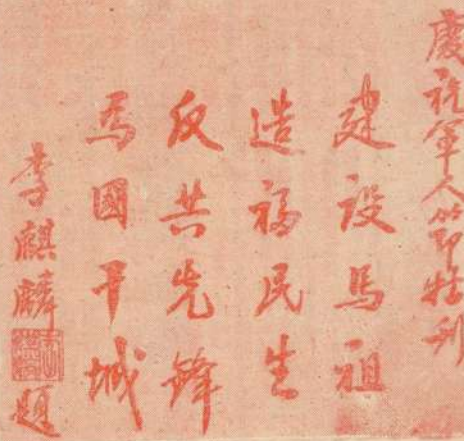 慶祝軍人節特刊
建設馬祖
造福民生
反共先鋒
爲國干城
李麒麟題